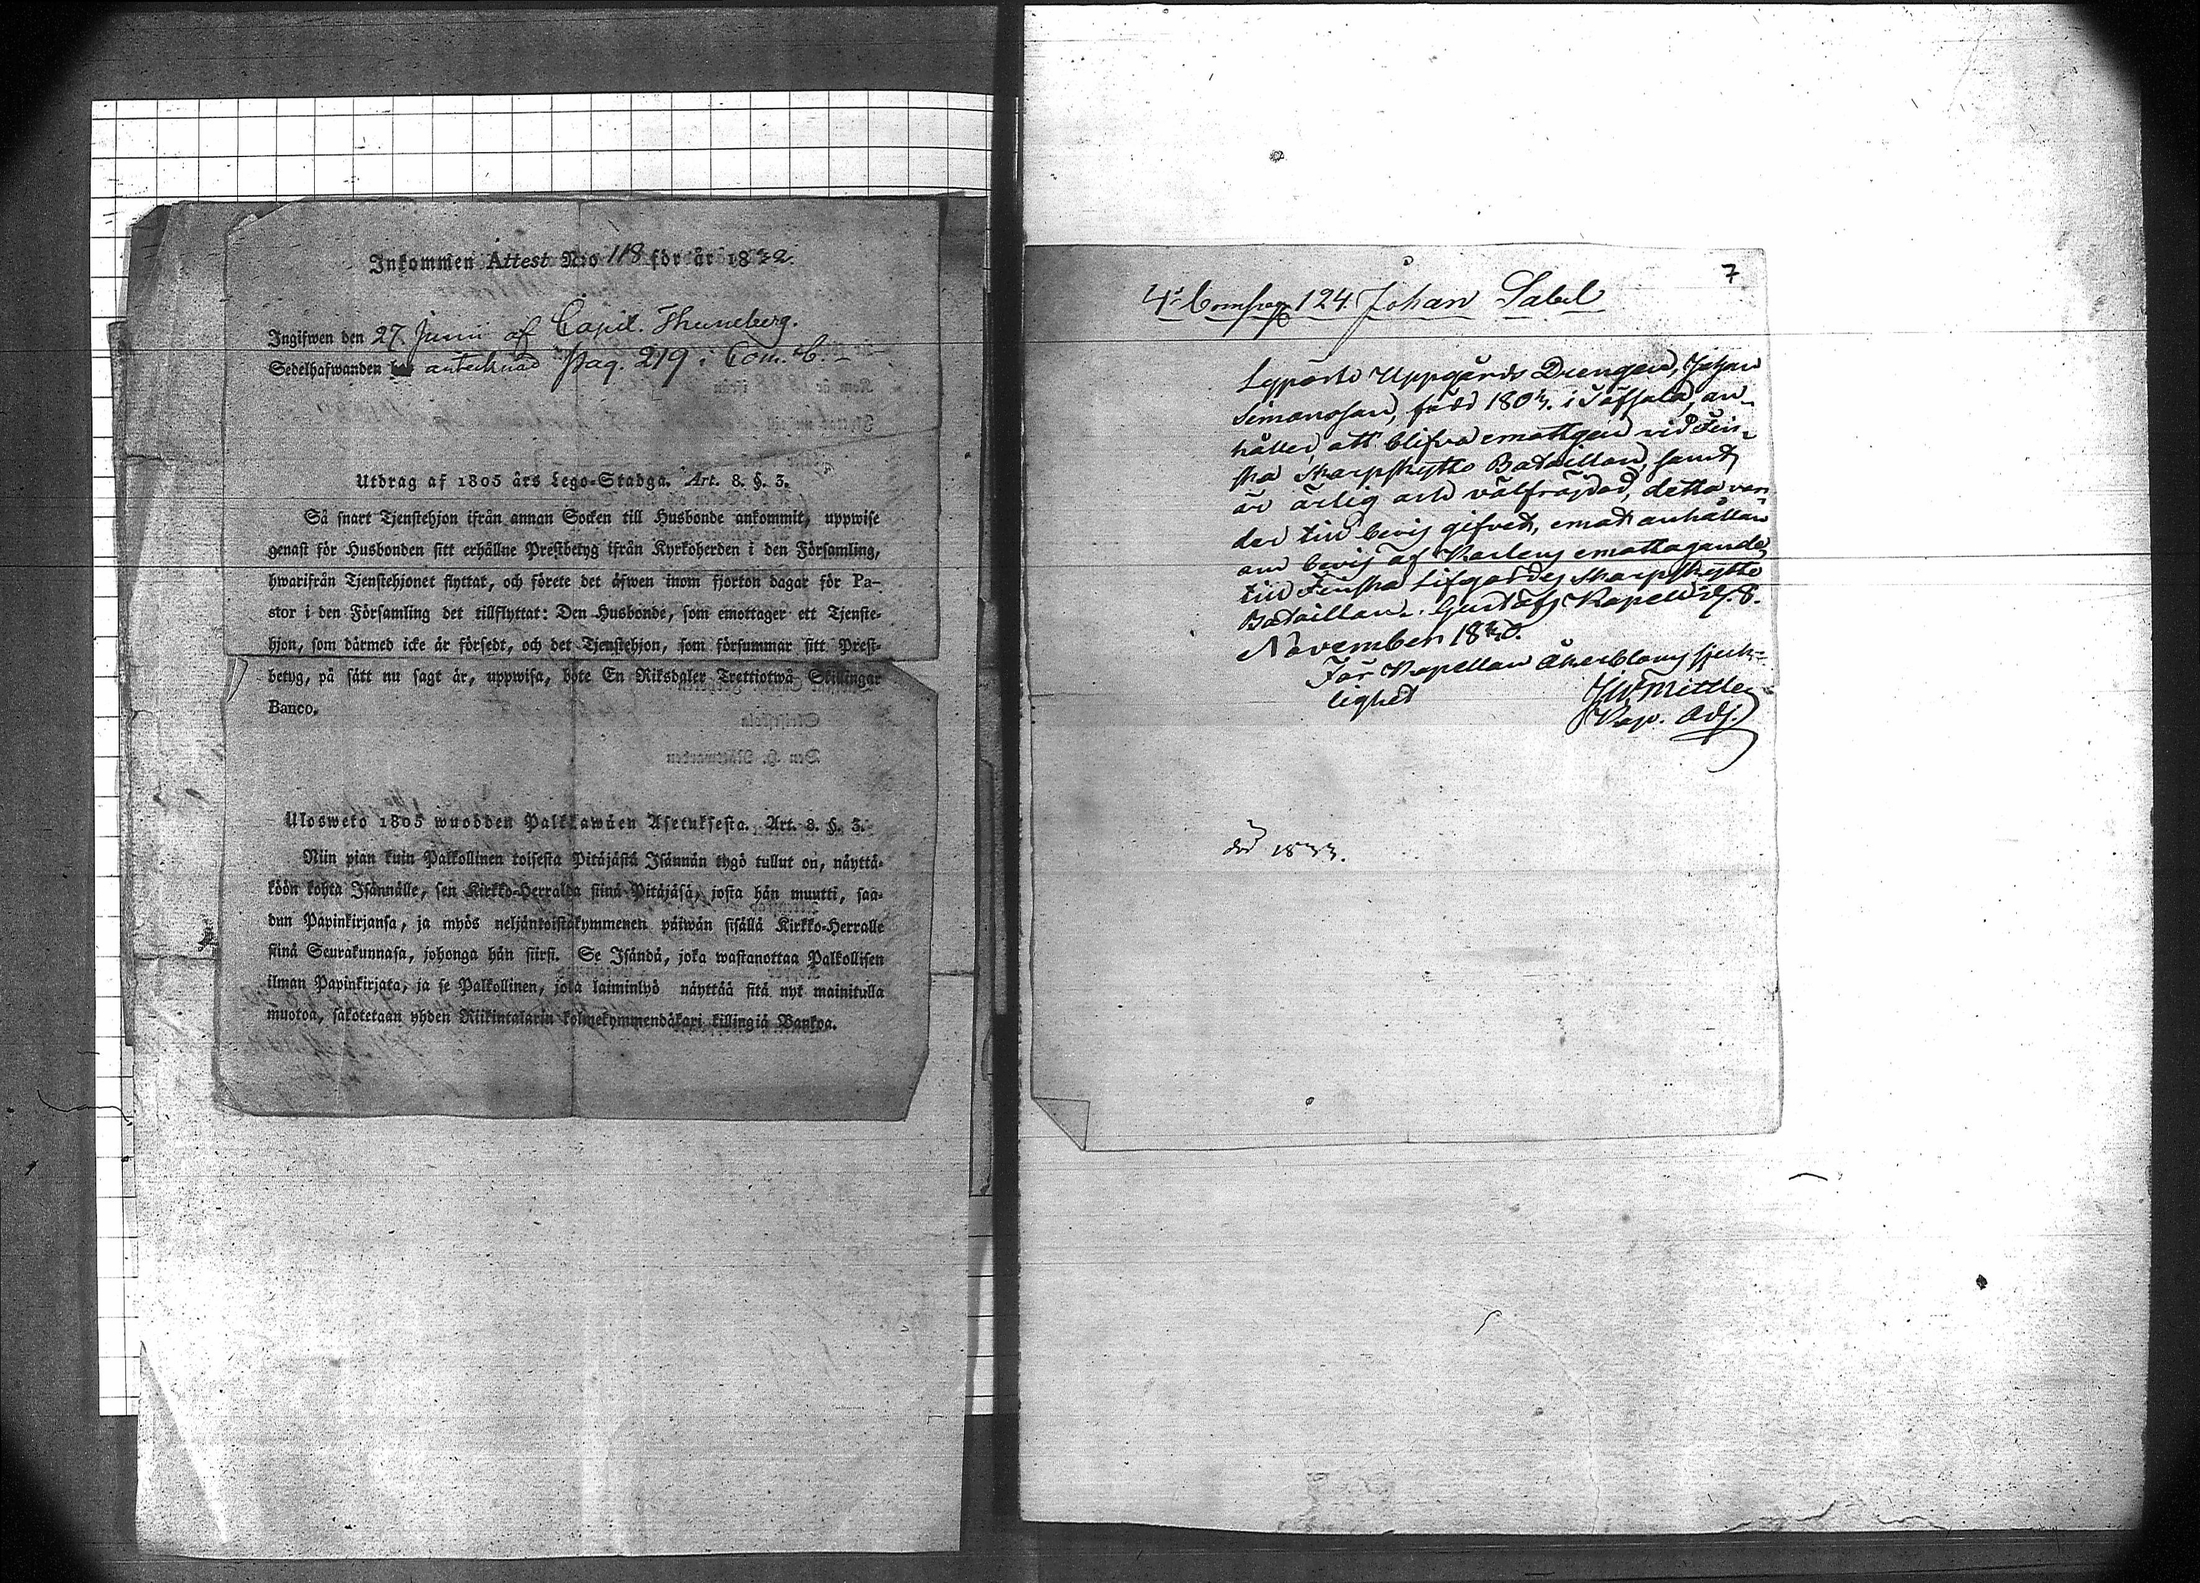 Inkommen Attest N:o 118 för år 1832.
Ingifwen den 27. Junii af Capit. Thuneberg.
Sedelhafwanden antecknad pag. 219 i Com. B.
Utdrag af 1805 års Lego-Stadga. Art. 8. §. 3.
Så snart Tjenstehjon ifrån annan Socken till Husbonde ankommit, uppwise
genast för Husbonden sitt erhållne Prestbetyg ifrån Kyrkoherden i den Församling,
hwarifrån Tjenstehjonet flyttat, och förete det äfwen inom fjorton dagar för Pa-
stor i den Församling det tillflyttat: Den Husbonde, som emottager ett Tjenste-
hjon, som därmed icke är försedt, och det Tjenstehjon, som försummar sitt Prest-
betyg, på sätt nu sagt är, uppwisa, böte En Riksdaler Trettiotwå Skillingar
Banco.
Ulosweto 1805 wuodden Palkkawäen Asetuksesta. Art. 8. §. 3.
Niin pian kuin Palkollinen toisesta Pitäjästä Isännän tygö tullut on, näyttä-
köön kohta Isännälle, sen Kirkko-Herralda siinä Pitäjäsä, josta hän muutti, saa-
dun Papinkirjansa, ja myös neljäntoistakymmenen päiwän sisällä Kirkko-Herralle
siinä Seurakunnasa, johonga hän siirsi. Se Isändä, joka wastanottaa Palkollisen
ilman Papinkirjata, ja se Palkollinen, joka laiminlyö näyttää sitä nyt mainitulla
muotoa, sakotetaan yhden Riikintalarin kolmekymmendäkaxi killingiä Bankoa.
7
4:e Comp. 124. Johan Sabel
Uppgårds Drengen, Johan
Simonsson, född 1803. i an-
håller att blifva emottgen vid Fin-
ska Skarpskytte Bataillon, samt
är ärlig och välfräjdad, detta var-
der till bevis gifvet, emot anhållan
om bevis af Karlens emottagande
till Finska Lifgardes Skarpskytte
Bataillon. Gustafs Kapell d. 8.
November 1830.
För Kapellan Åkerbloms sjuk-
lighet
Kap. Adj.
död 1833.